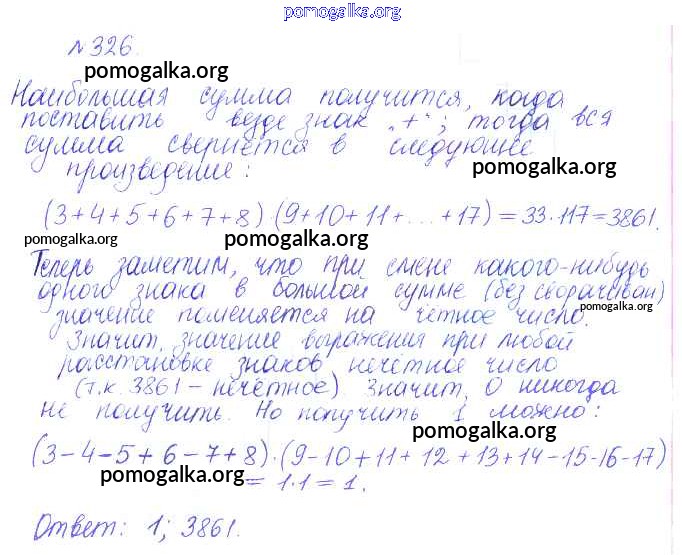 pomogalka.org
№326.
pomogalka.org
Наибольшая сумма получится, когда
поставить везде знак „+“; тогда вся
сумма свернётся в следующее
pomogalka.org
произведение:
(3+4+5+6+7+8)·(9+10+11+...+17)=33·117=3861.
pomogalka.org pomogalka.org
Теперь заметим, что при смене какого-нибудь
одного знака в большой сумме (без сворачиван)
pomogalka.org
значение поменяется на чётное число.
Значит, значение выражения при любой
расстановке знаков нечётное число
(т.к. 3861 – нечётное). Значит, 0 никогда
не получить. Но получить 1 можно:
pomogalka.org
(3-4-5+6-7+8)·(9-10+11+12+13+14-15-16-17)
pomogalka.org
=1·1=1.
Ответ: 1; 3861.